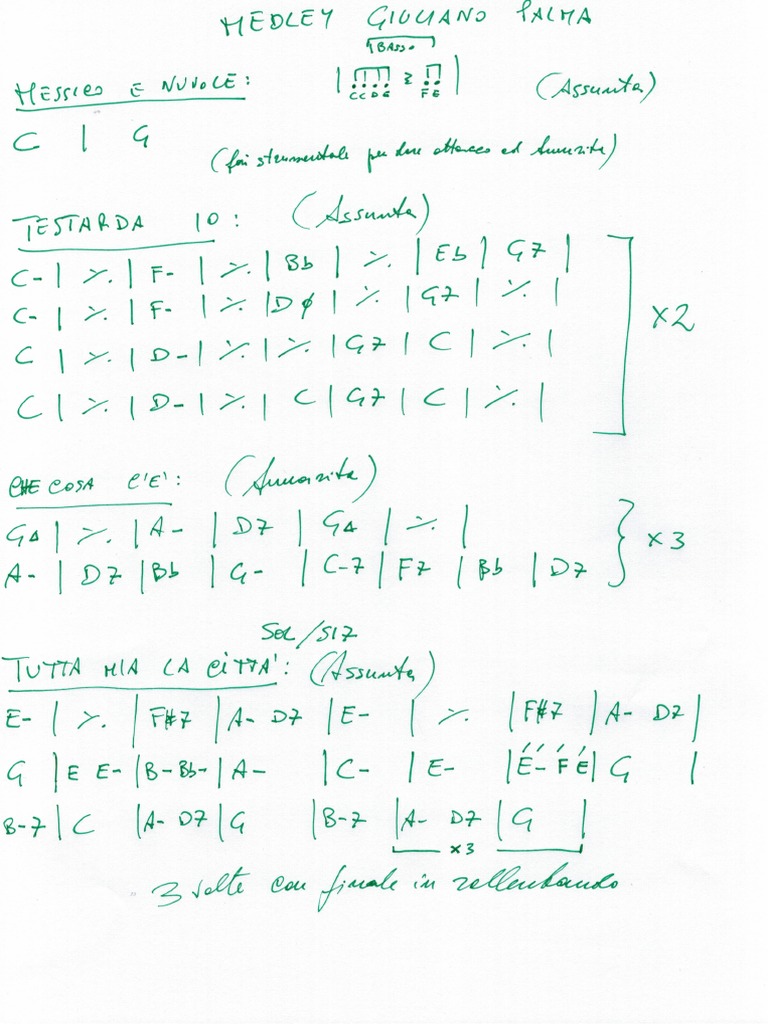 MEDLEY GIULIANO PALMA
BASSO
MESSICO E NUVOLE: | C C D E F E | (Assunta)
C | G
(poi strumentale per dare attacco ad Annarita)
TESTARDA IO: (Assunta)
C- | ٪ | F- | ٪ | Bb | ٪ | Eb | G7 |
C- | ٪ | F- | ٪ | Dø | ٪ | G7 | ٪ |
x2
C | ٪ | D- | ٪ | ٪ | G7 | C | ٪ |
C | ٪ | D- | ٪ | C | G7 | C | ٪ |
CHE COSA C'E': (Annarita)
G∆ | ٪ | A- | D7 | G∆ | ٪ |
x3
A- | D7 | Bb | G- | C-7 | F7 | Bb | D7
SOL/SI7
TUTTA MIA LA CITTA': (Assunta)
E- | ٪ | F#7 | A- D7 | E- | ٪ | F#7 | A- D7 |
G | E E- | B- Bb- | A- | C- | E- | E- F E | G |
B-7 | C | A- D7 | G | B-7 | A- D7 | G |
x3
3 volte con finale in rallentando